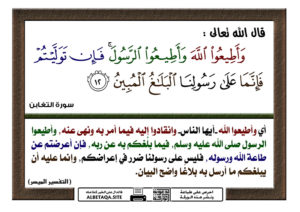 قال الله تعالى :
وَأَطِيعُوا۟ ٱللَّهَ وَأَطِيعُوا۟ ٱلرَّسُولَ ۚ فَإِن تَوَلَّيْتُمْ
فَإِنَّمَا عَلَىٰ رَسُولِنَا ٱلْبَلَـٰغُ ٱلْمُبِينُ ١٢
سورة التغابن
أي وأطيعوا الله-أيها الناس-وانقادوا إليه فيما أمر به ونهى عنه، وأطيعوا
الرسول صلى الله عليه وسلم، فيما بلغكم به عن ربه، فإن أعرضتم عن
طاعة الله ورسوله، فليس على رسولنا ضرر في إعراضكم، وإنما عليه أن
يبلغكم ما أرسل به بلاغا واضح البيان.
(التفسير الميسر)
ALBETAQA.SITE
احرص على طباعة
ونشر هذه البطاقة